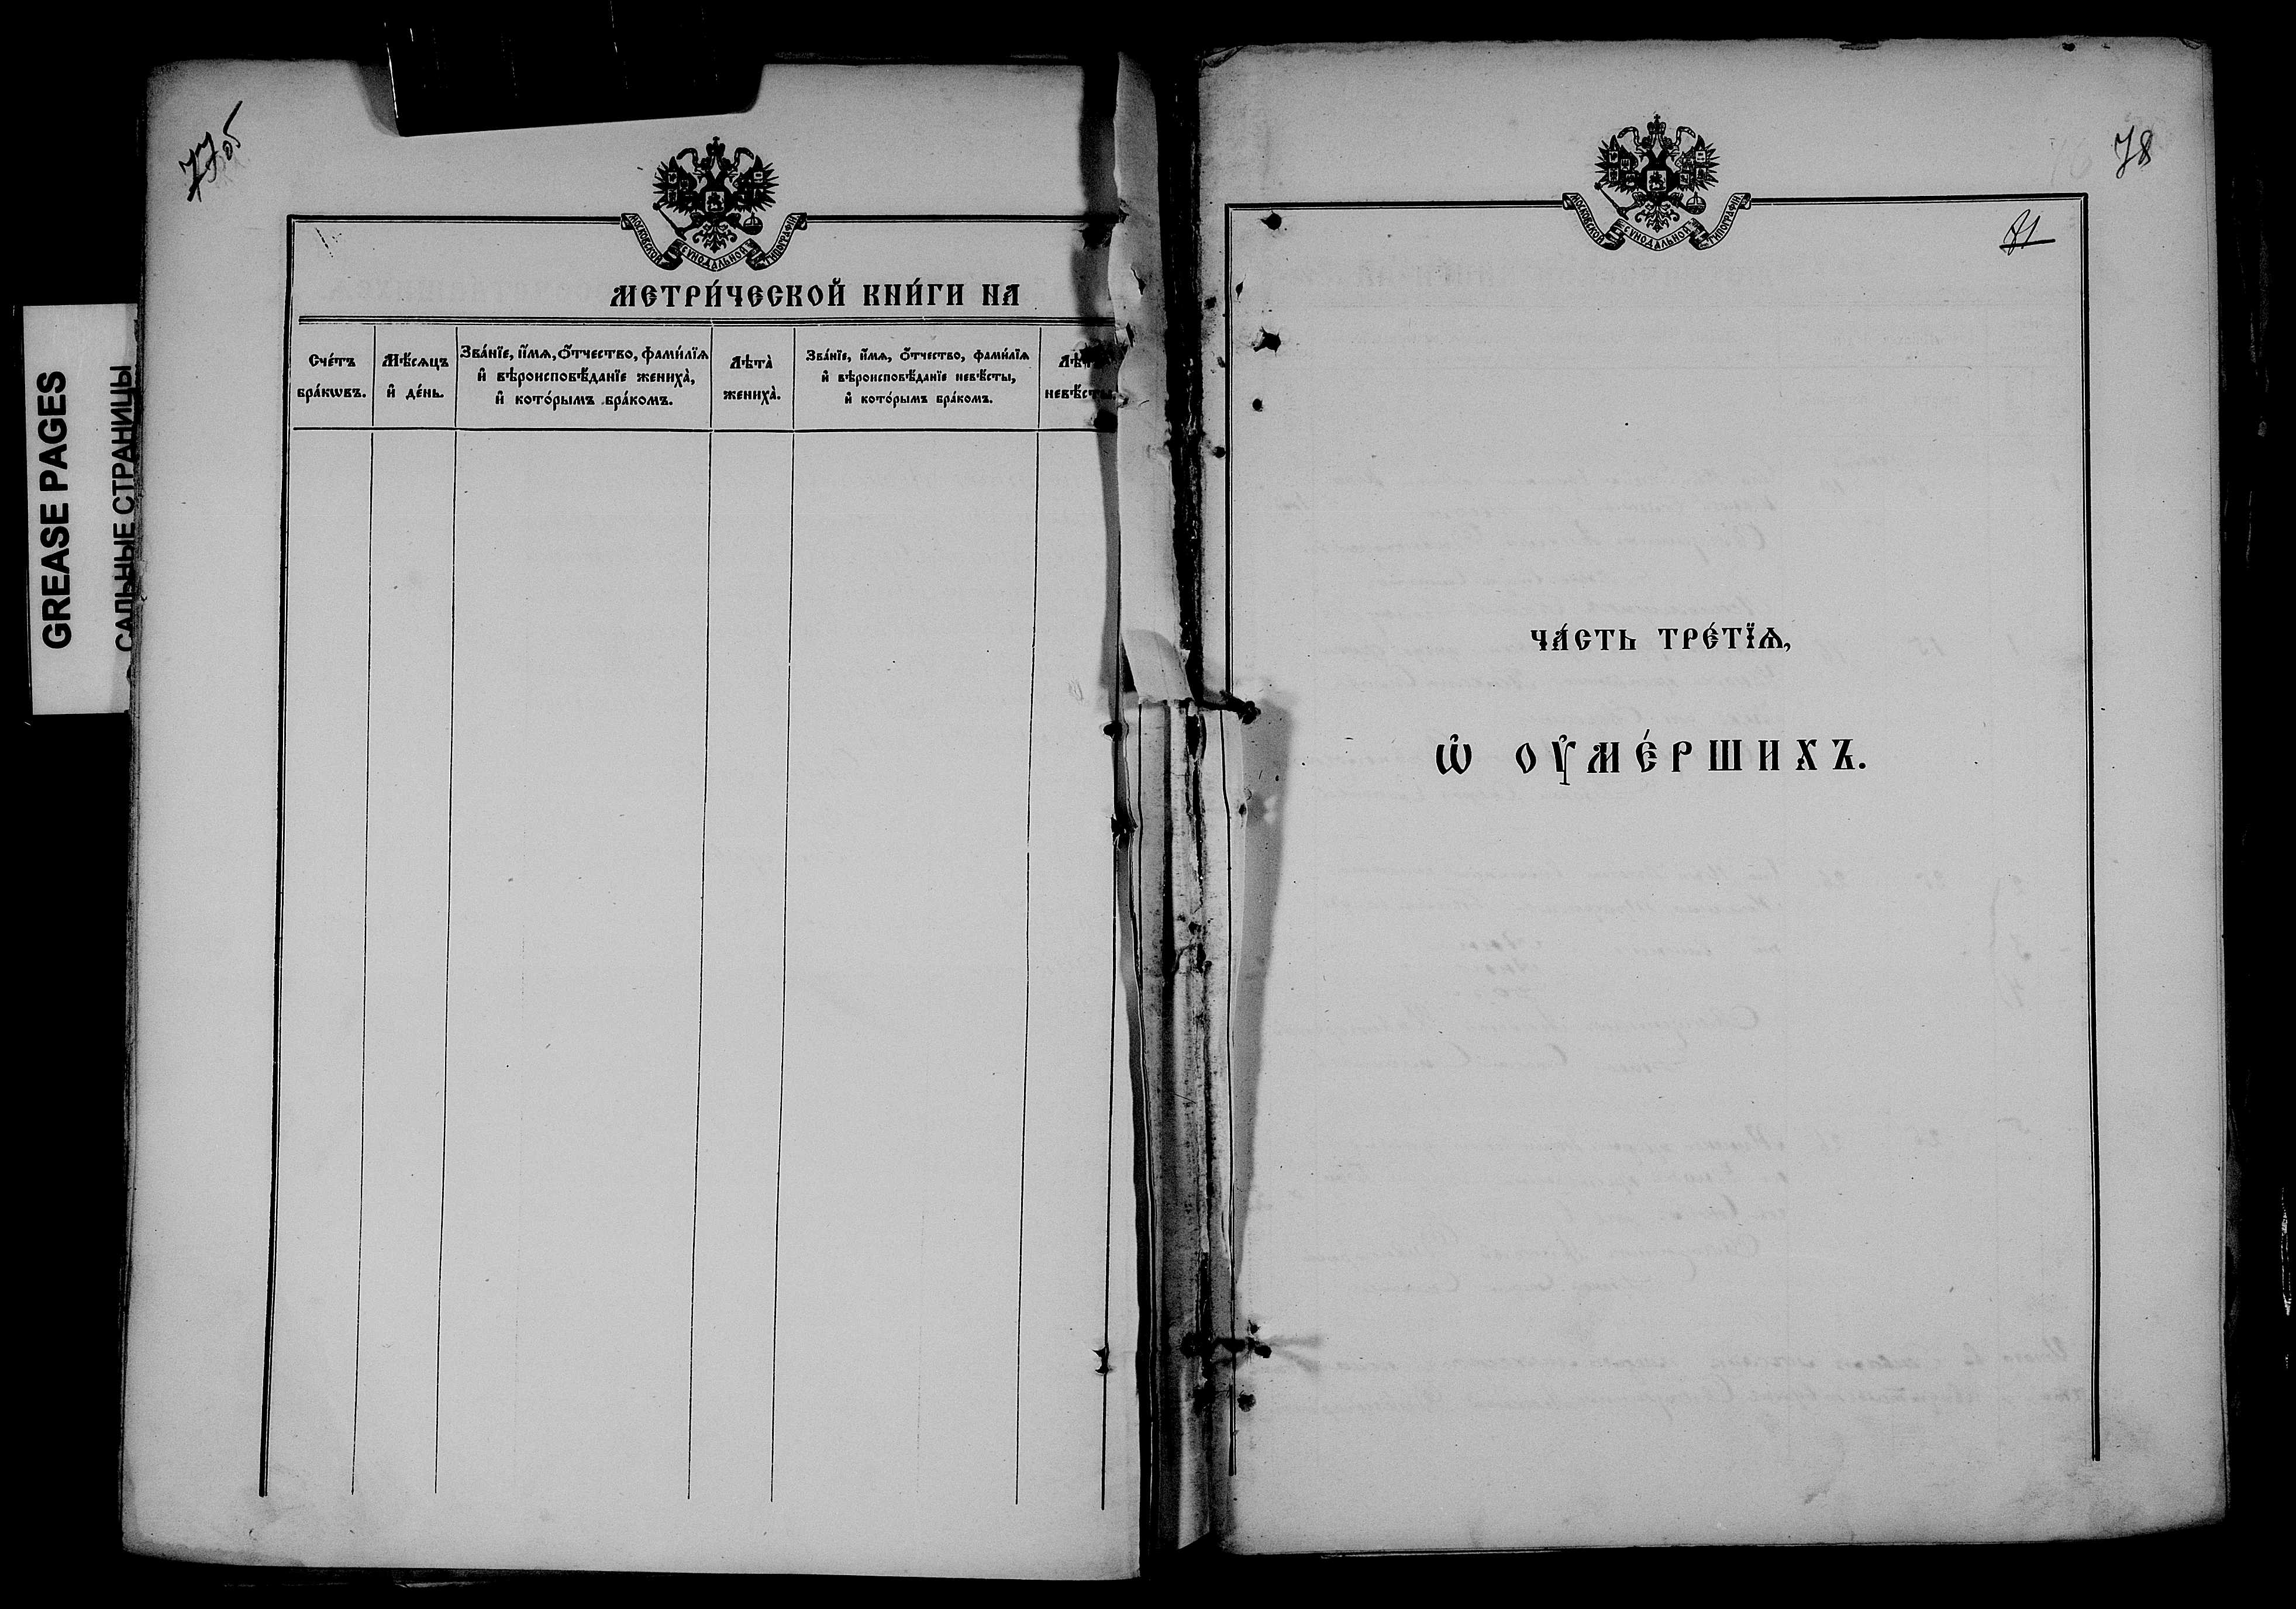 GREASE PAGES
САЛЬНЫЕ СТРАНИЦЫ
77об
МОСКОВСКОЙ СѴНОДАЛЬНОЙ ТИПОГРАФІИ
МЕТРИ́ЧЕСКОЙ КНИ́ГИ НА
Сче́тъ бра́кѡвъ.
Мѣ́сѧцъ и҆ де́нь.
Зва́нїе, и҆́мѧ, ѻ҆́тчество, фами́лїѧ
и҆ вѣроисповѣ́данїе жениха̀,
и҆ кото́рымъ бра́комъ.
Лѣта̀ жениха̀.
Зва́нїе, и҆́мѧ, ѻ҆́тчество, фами́лїѧ
и҆ вѣроисповѣ́данїе невѣ́сты,
и҆ кото́рымъ бра́комъ.
78
МОСКОВСКОЙ СѴНОДАЛЬНОЙ ТИПОГРАФІИ
81
ЧА́СТЬ ТРЕ́ТЇѦ,
Ѡ҆ ОУ҆МЕ́РШИХЪ.